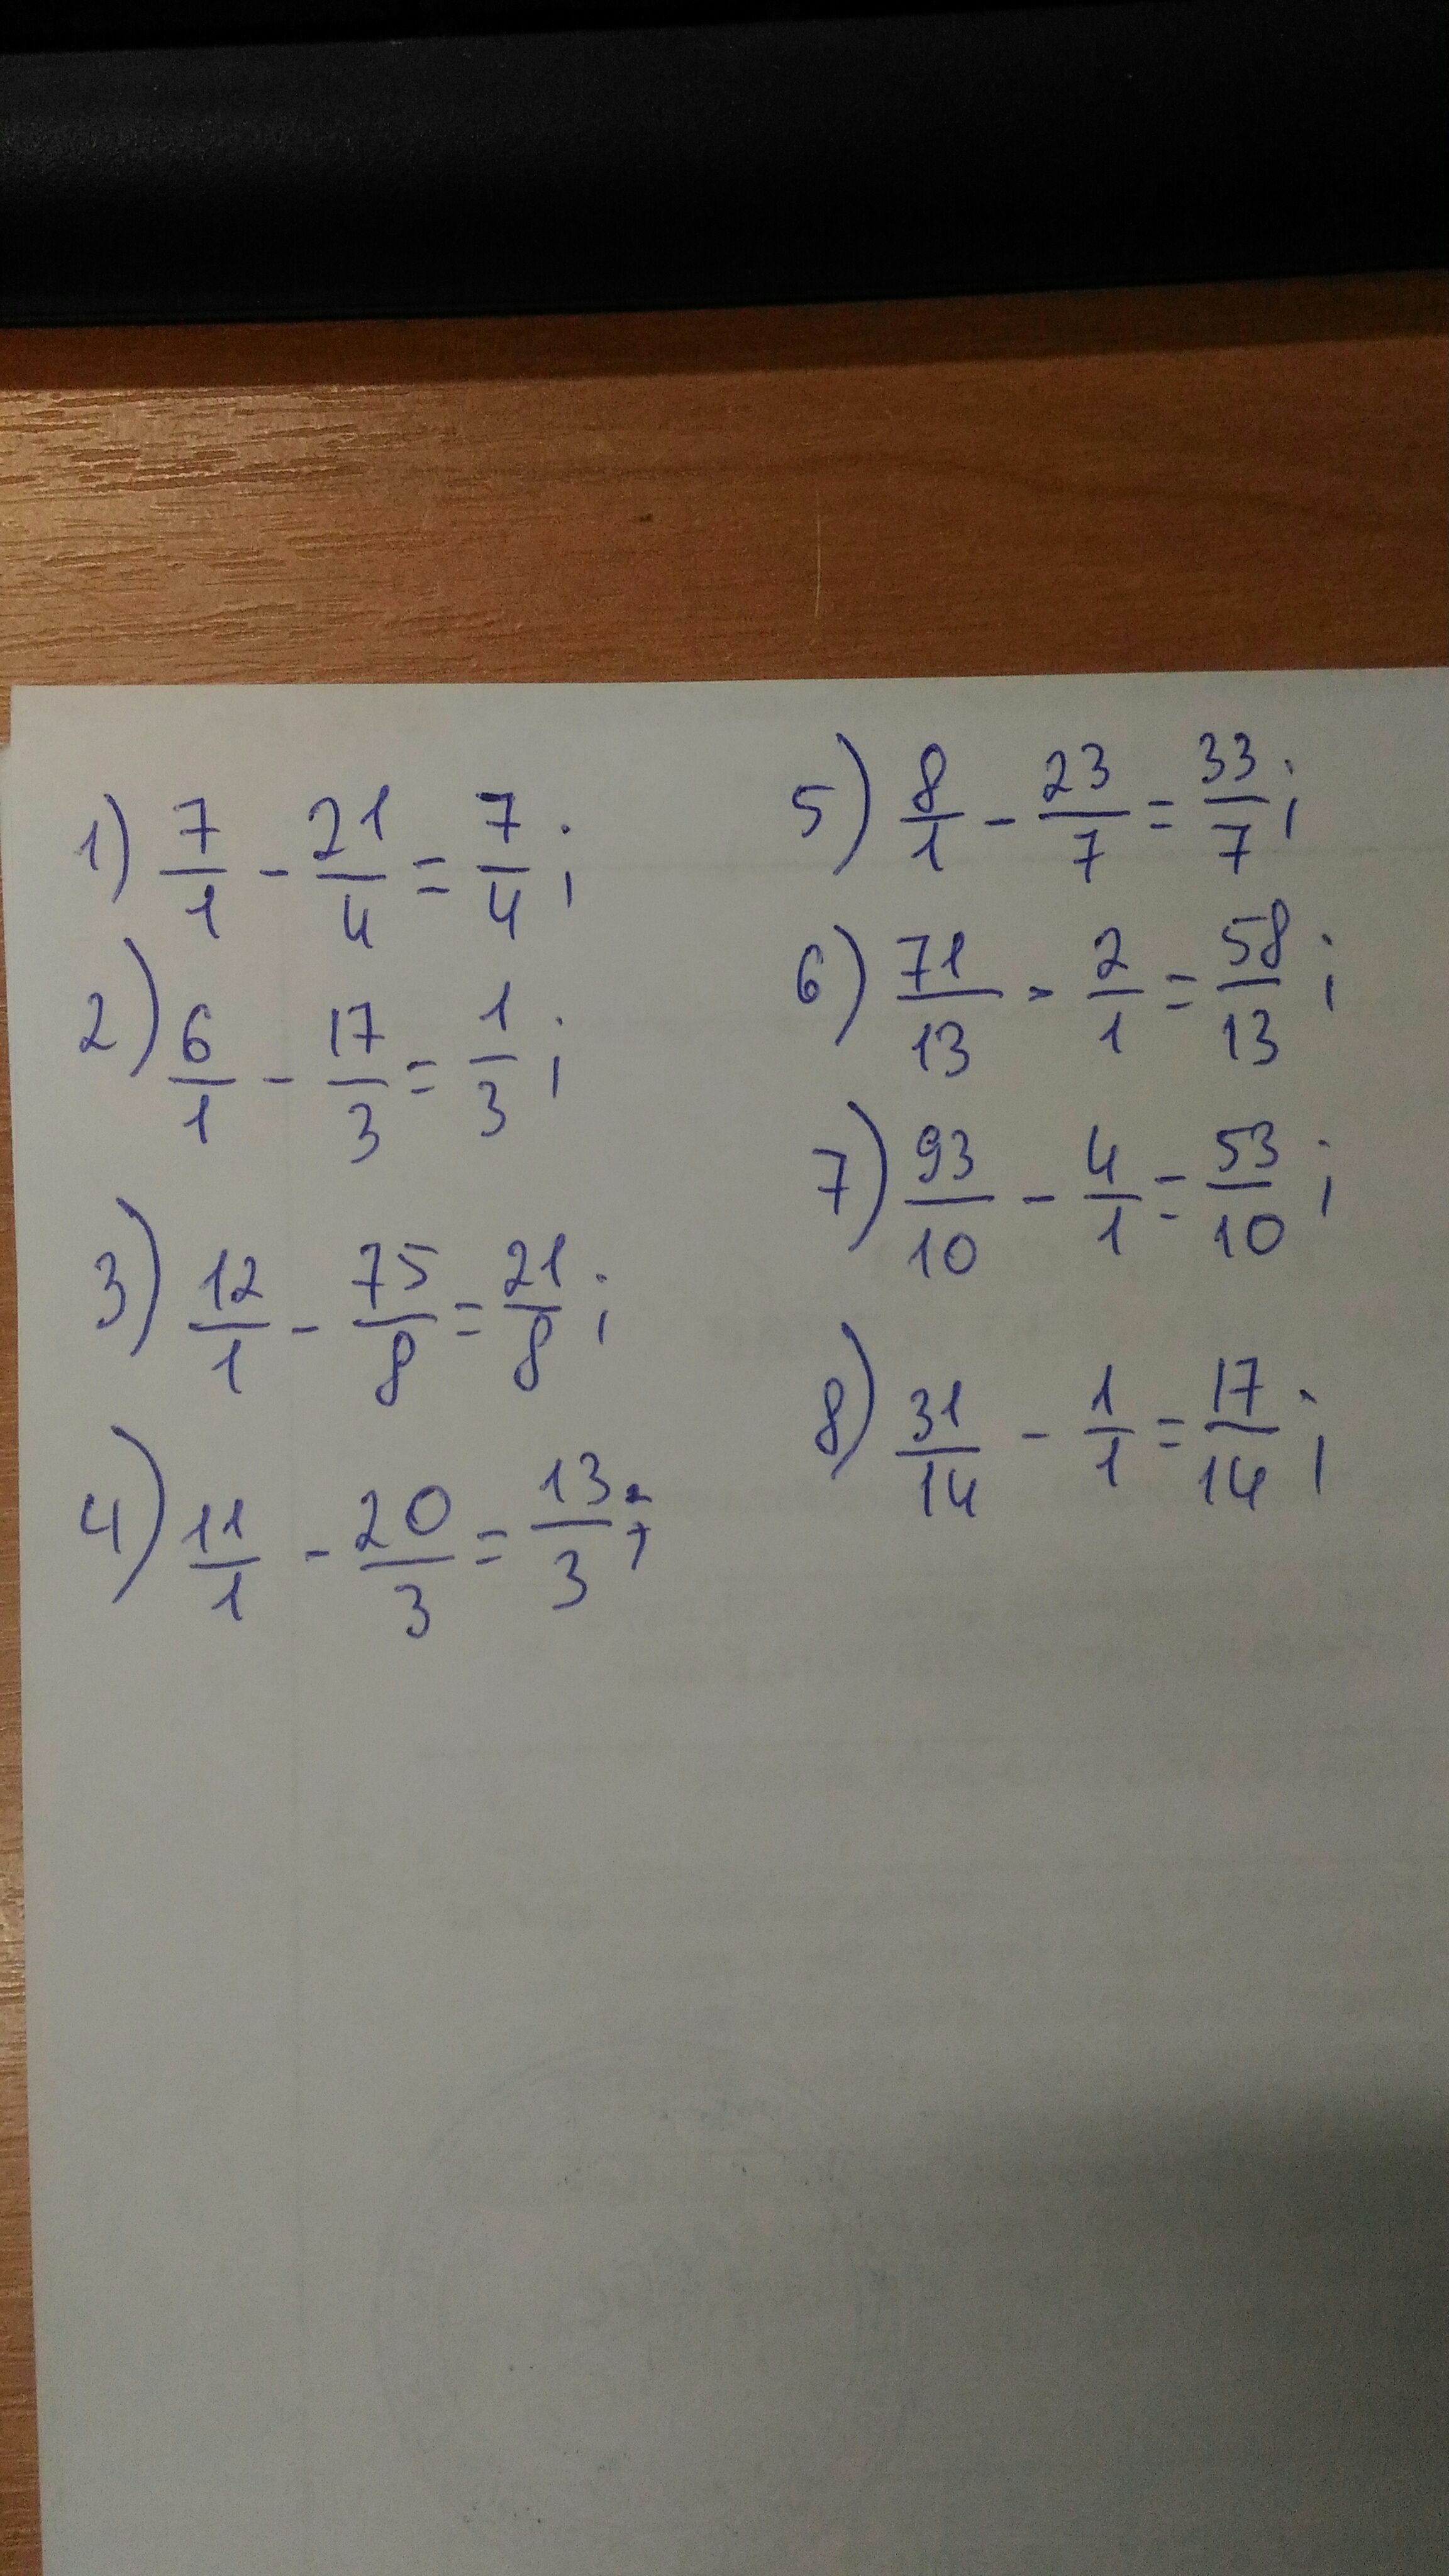 1) 7/1 - 21/4 = 7/4;
2) 6/1 - 17/3 = 1/3;
3) 12/1 - 75/8 = 21/8;
4) 11/1 - 20/3 = 13/3;
5) 8/1 - 23/7 = 33/7;
6) 71/13 - 2/1 = 58/13;
7) 93/10 - 4/1 = 53/10;
8) 31/14 - 1/1 = 17/14;